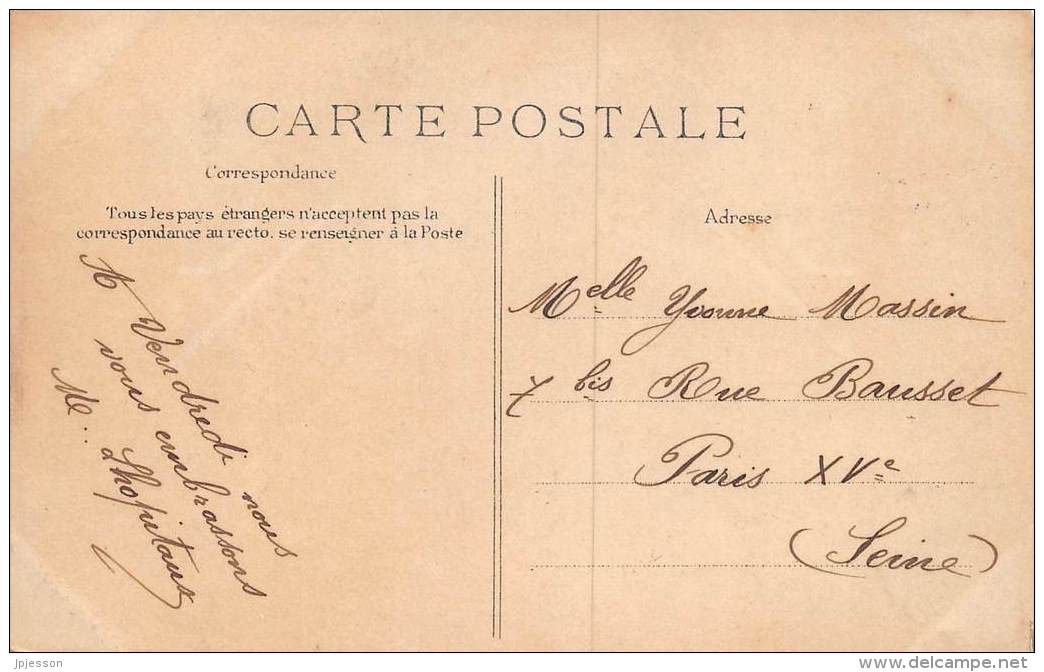 CARTE POSTALE
Correspondance
Tous les pays étrangers n'acceptent pas la
correspondance au recto. se renseigner à la Poste
A Vendredi nous
vous embrassons
M.. Lhopitaux
Adresse
Melle Yvonne Massin
7 bis Rue Bausset
Paris XVe
(Seine)
jpjesson
delcampe.net